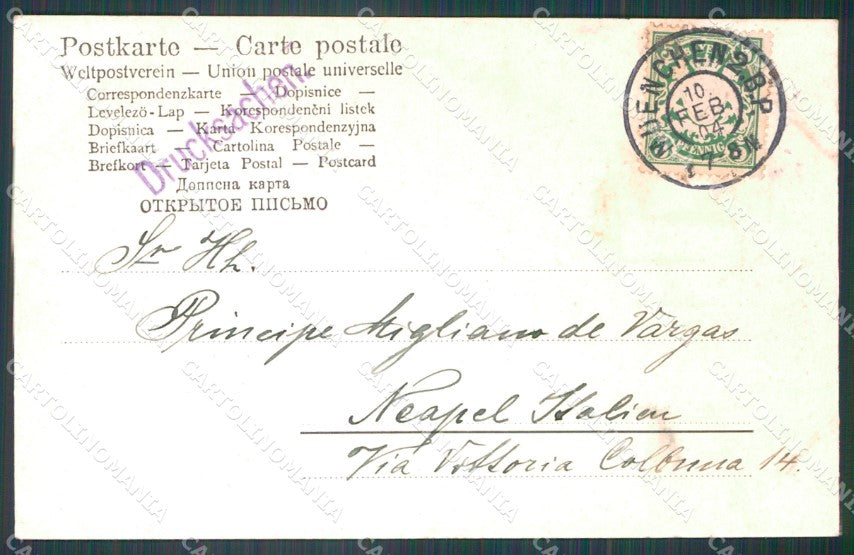 Postkarte — Carte postale
Weltpostverein — Union postale universelle
Correspondenzkarte — Dopisnice —
Levelező-Lap — Korespondenčni listek
Dopisnica — Karta Korespondenzyjna
Briefkaart — Cartolina Postale —
Brefkort — Tarjeta Postal — Postcard
Дописна карта
ОТКРЫТОЕ ПИСЬМО
Drucksachen.
MUENCHEN 2.B.P.
10.
FEB
04
7-8N
PFENNIG
Sr. Hh.
Principe Migliano de Vargas
Neapel Italien
Via Vittoria Colonna 14.
CARTOLINOMANIA